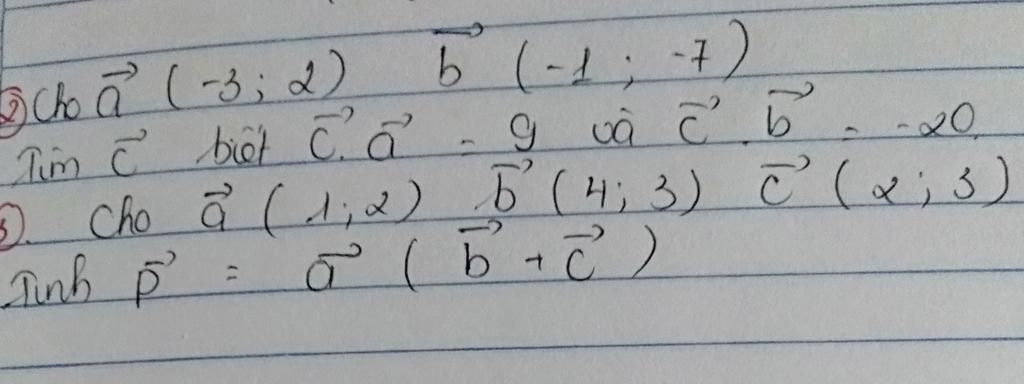 ② Cho a⃗ (-3; 2) b⃗ (-1; -7)
Tìm c⃗ biết c⃗. a⃗ = 9 và c⃗. b⃗ = -20.
3). Cho a⃗ (1; 2) b⃗ (4; 3) c⃗ (2; 3)
Tính p⃗ = a⃗ (b⃗ + c⃗)